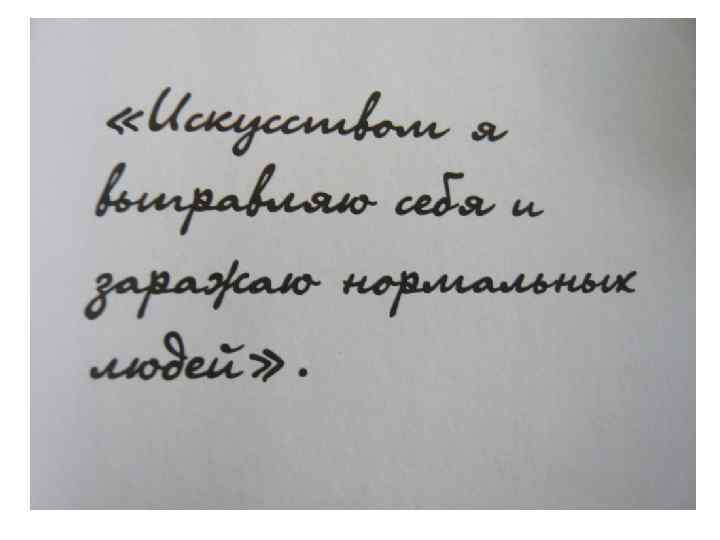 «Искусством я
выправляю себя и
заражаю нормальных
людей».